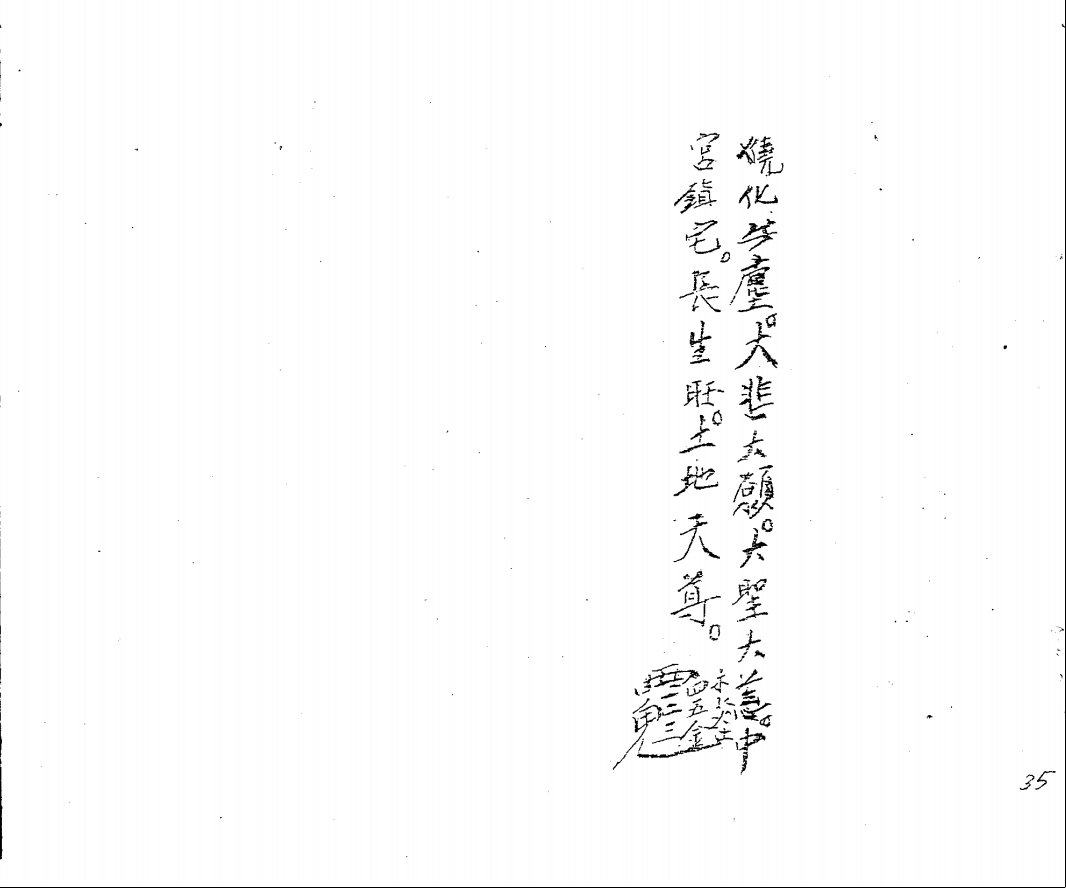 燒化共塵。大悲大願。大聖大慈。中
宮鎮宅。長生旺。土地天尊。
35